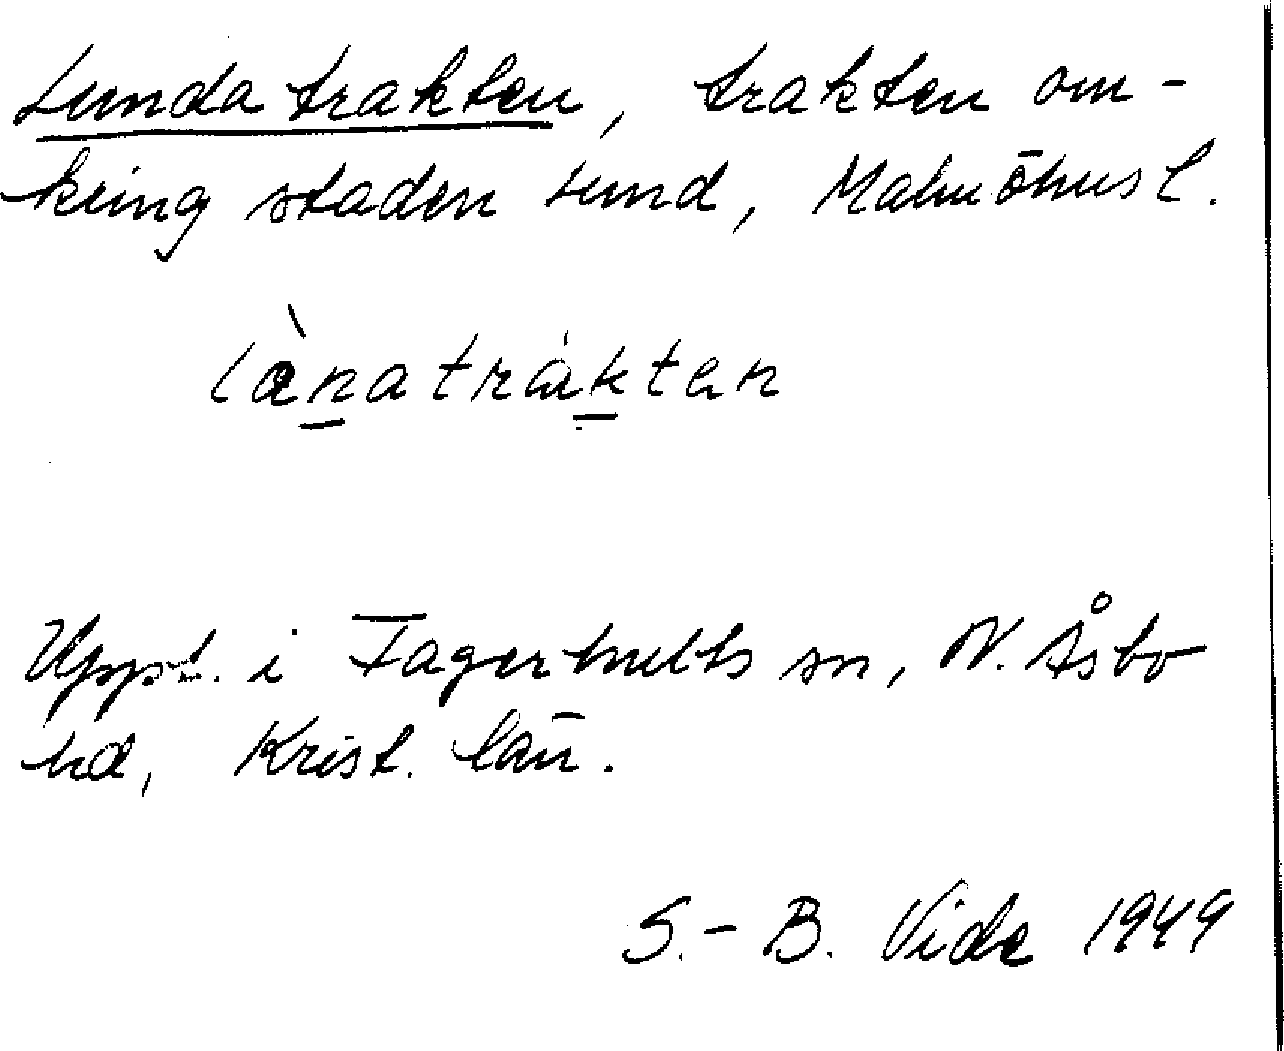 Lundatrakten, trakten om-
kring staden Lund, Malmöhus l.
lànatràkten
Uppt. i Fagerhults sn, N. Åsbo
hd, Krist. län.
S.-B. Vide 1949